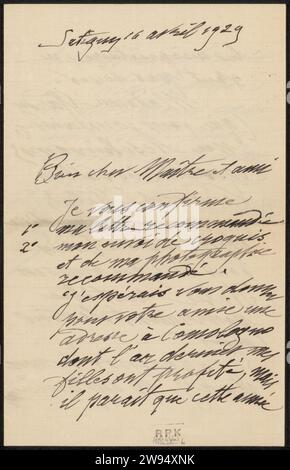 Satigny 16 avril 1929
Bien cher Maître & ami
Je vous confirme
1° ma lettre recommandée
2° mon envoi de croquis
et de ma photographie
recommandé.
J'espérais vous donner
pour votre amie une
adresse à Comologno
dont l'an dernier mes
filles ont profité, mais
il paraît que cette année
R.P.K
alamy
Image ID: 2W94XNK
www.alamy.com